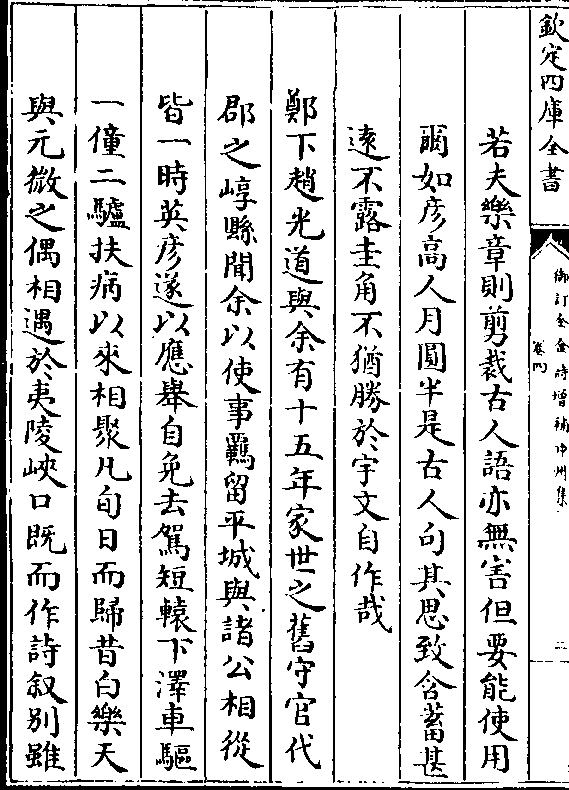 欽定四庫全書
御訂全金詩增補中州集
卷四
二
若夫樂章則剪裁古人語亦無害但要能使用
爾如彥高人月圓半是古人句其思致含蓄甚
遠不露圭角不猶勝於宇文自作哉
鄭下趙光道與余有十五年家世之舊守官代
郡之崞縣聞余以使事羈留平城與諸公相從
皆一時英彥遂以應舉自免去駕短轅下澤車驅
一僮二驢扶病以來相聚凡旬日而歸昔白樂天
與元微之偶相遇於夷陵峽口既而作詩叙別雖